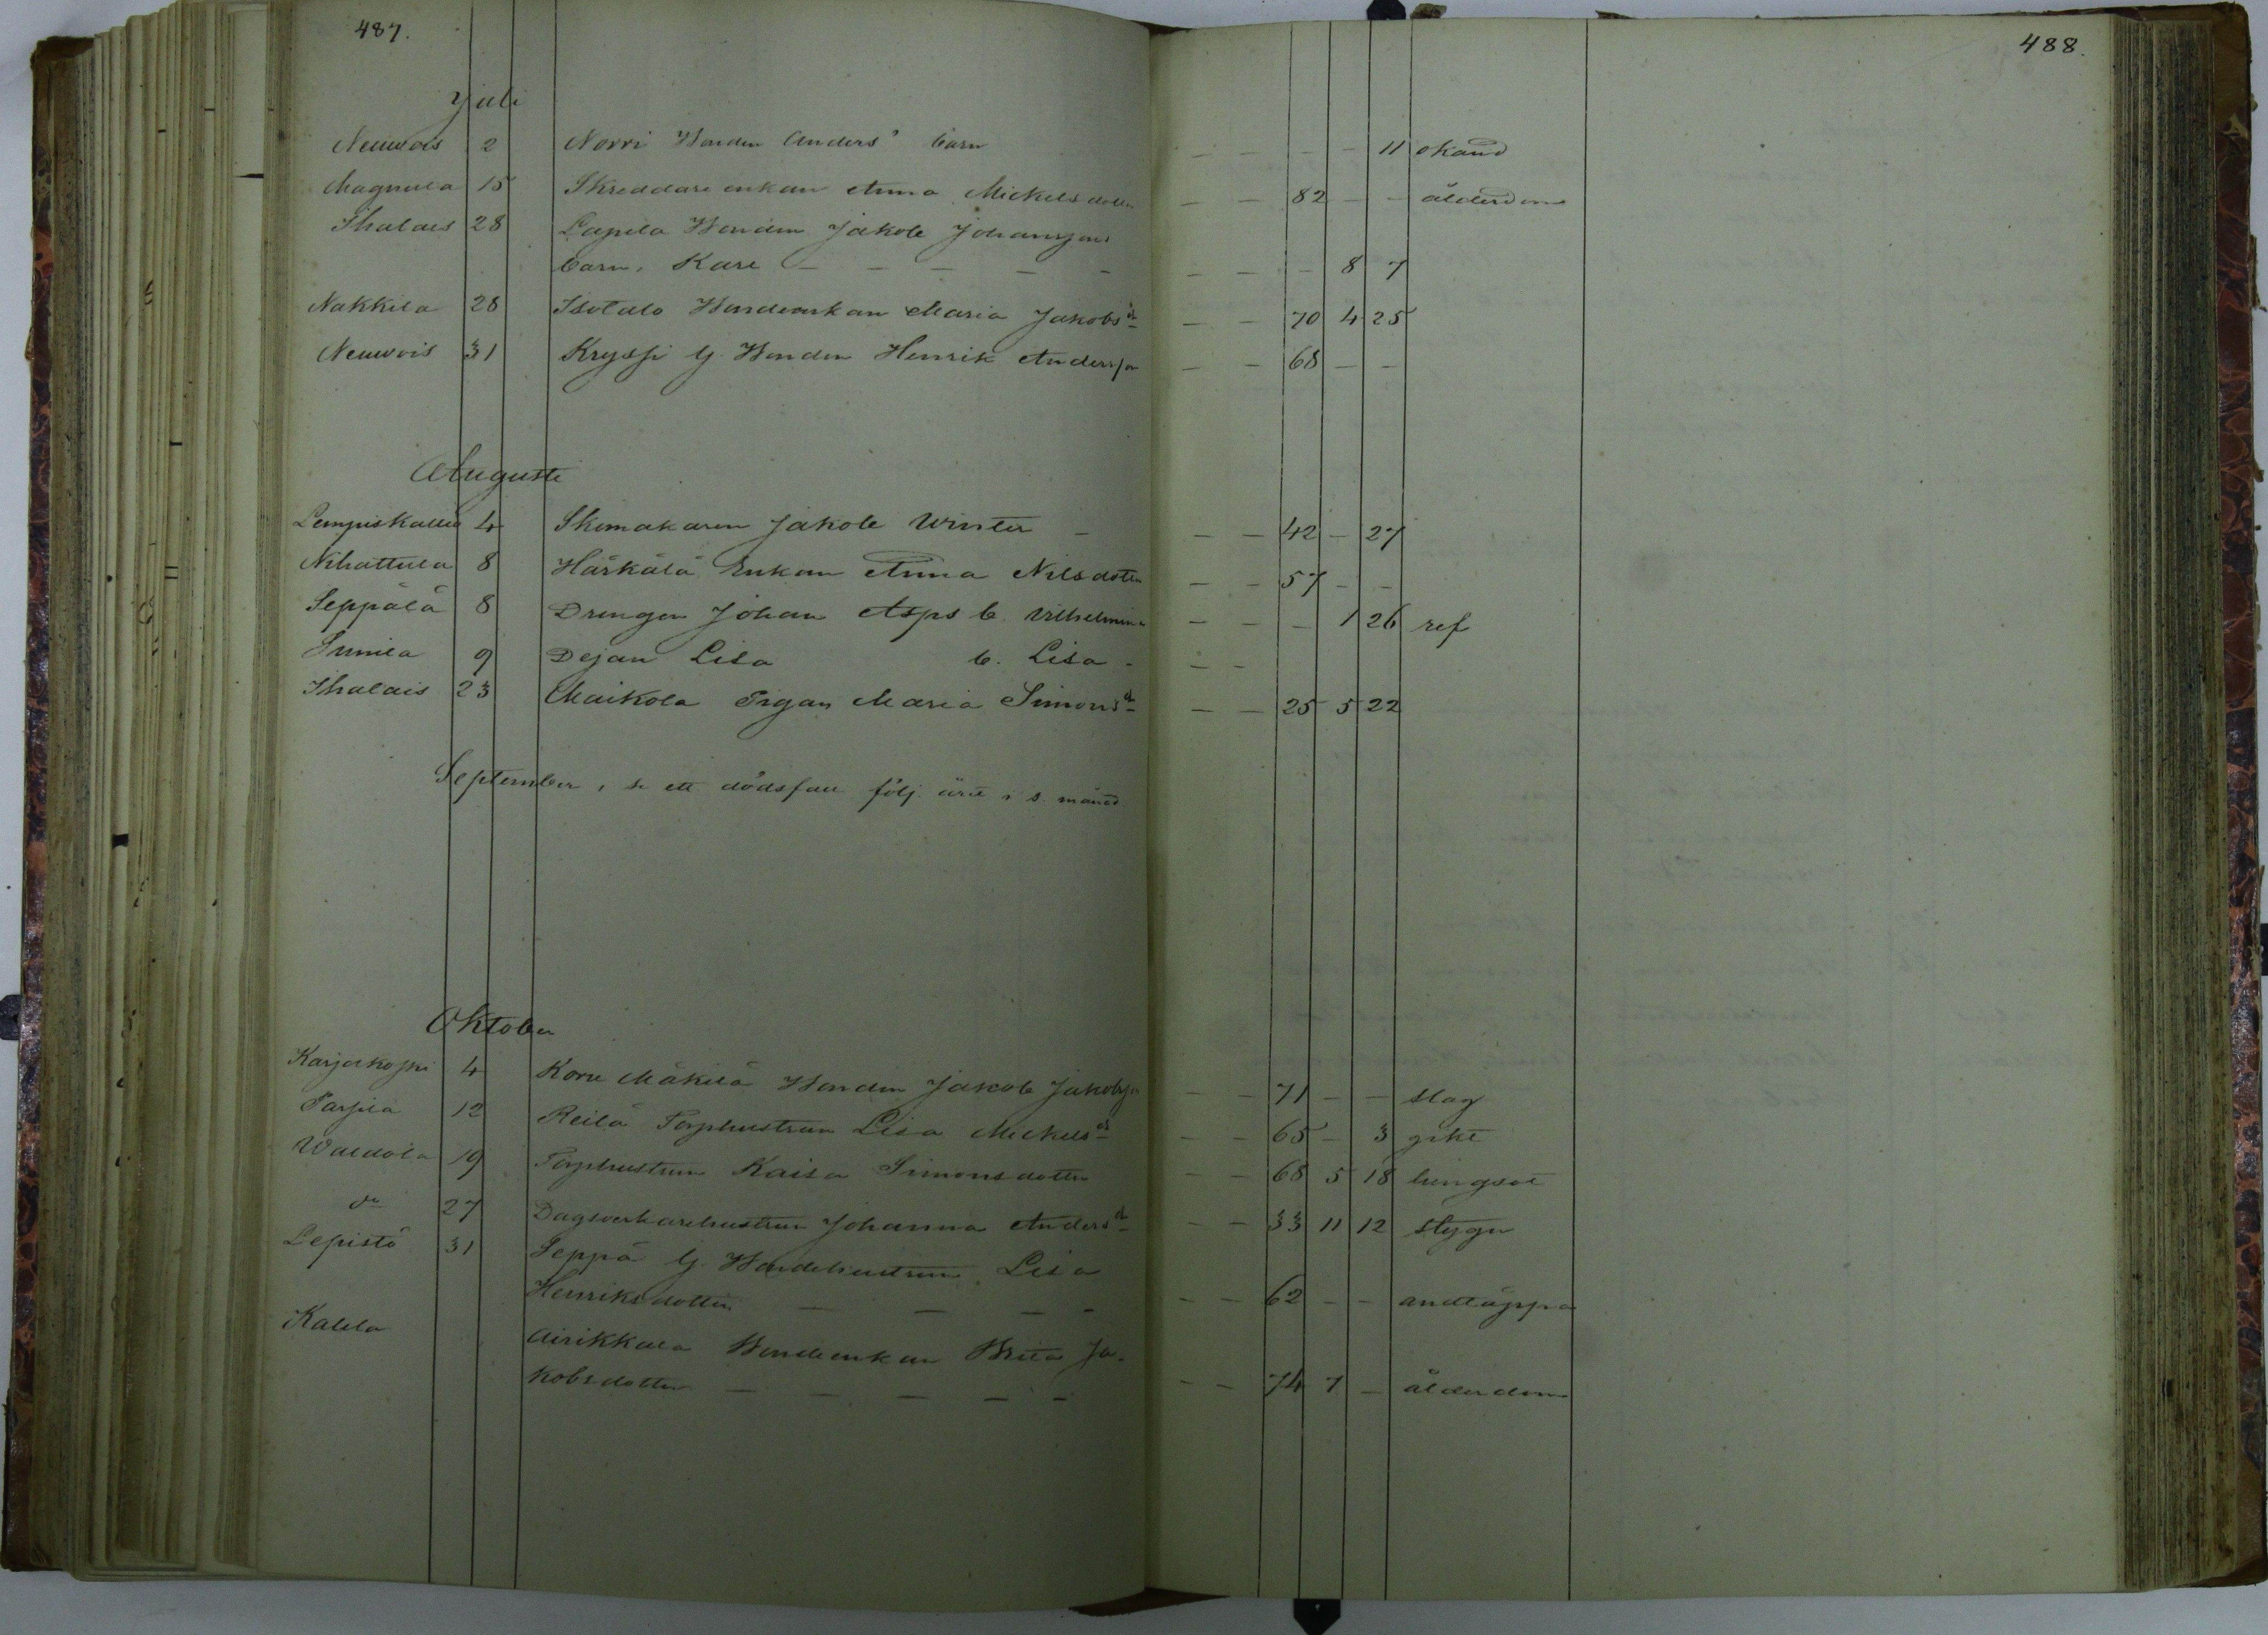 487. 488.
Juli
Neuvois 2 Norri Bonden Anders' barn — — — — 11 okänd
Magnula 15 Skreddare enkan Anna Mickelsdotter — — 82 — — ålderdom
Ihalais 28 Lapila Bonden Jakob Johansson
barn, Kare — — — — — — — — 8 7
Nakkila 28 Isotalo Bondeenkan Maria Jakobsdr — — 70 4 25
Neuvois 31 Kryssi g. Bonden Henrik Andersson — — 68 — —
Augusti
Lempiskallio 4 Skomakaren Jakob Winter — — — 42 — 27
Nihattula 8 Härkälä Enkan Anna Nilsdotter — — 57 — —
Seppälä 8 Drengen Johan Asps b. Vilhelmina — — — 1 26 ref
9 Dejan Lisa b. Lisa — — —
Ihalais 23 Maikola Pigan Maria Simonsdr — — 25 5 22
September, se ett dödsfall följ. året i s. månad
Oktober
Karjakoski 4 Mäkilä Bonden Jakob Jakobsson — — 71 — — slag
Tarpila 12 Reilä Torphustrun Lisa Mickelsdr — — 65 — 3 gikt
19 Torphustrun Kaisa Simonsdotter — — 68 5 18 lungsot
do 27 Dagsverkarehustrun Johanna Andersdr — — 33 11 12 stygn
Lepistö 31 Seppä g. Bondehustrun Lisa
Henriksdotter — — — — — — 62 — — andtäppa
Kalela Airikkala Bondeenkan Brita Ja-
kobsdotter — — — — — — — 74 7 — ålderdom